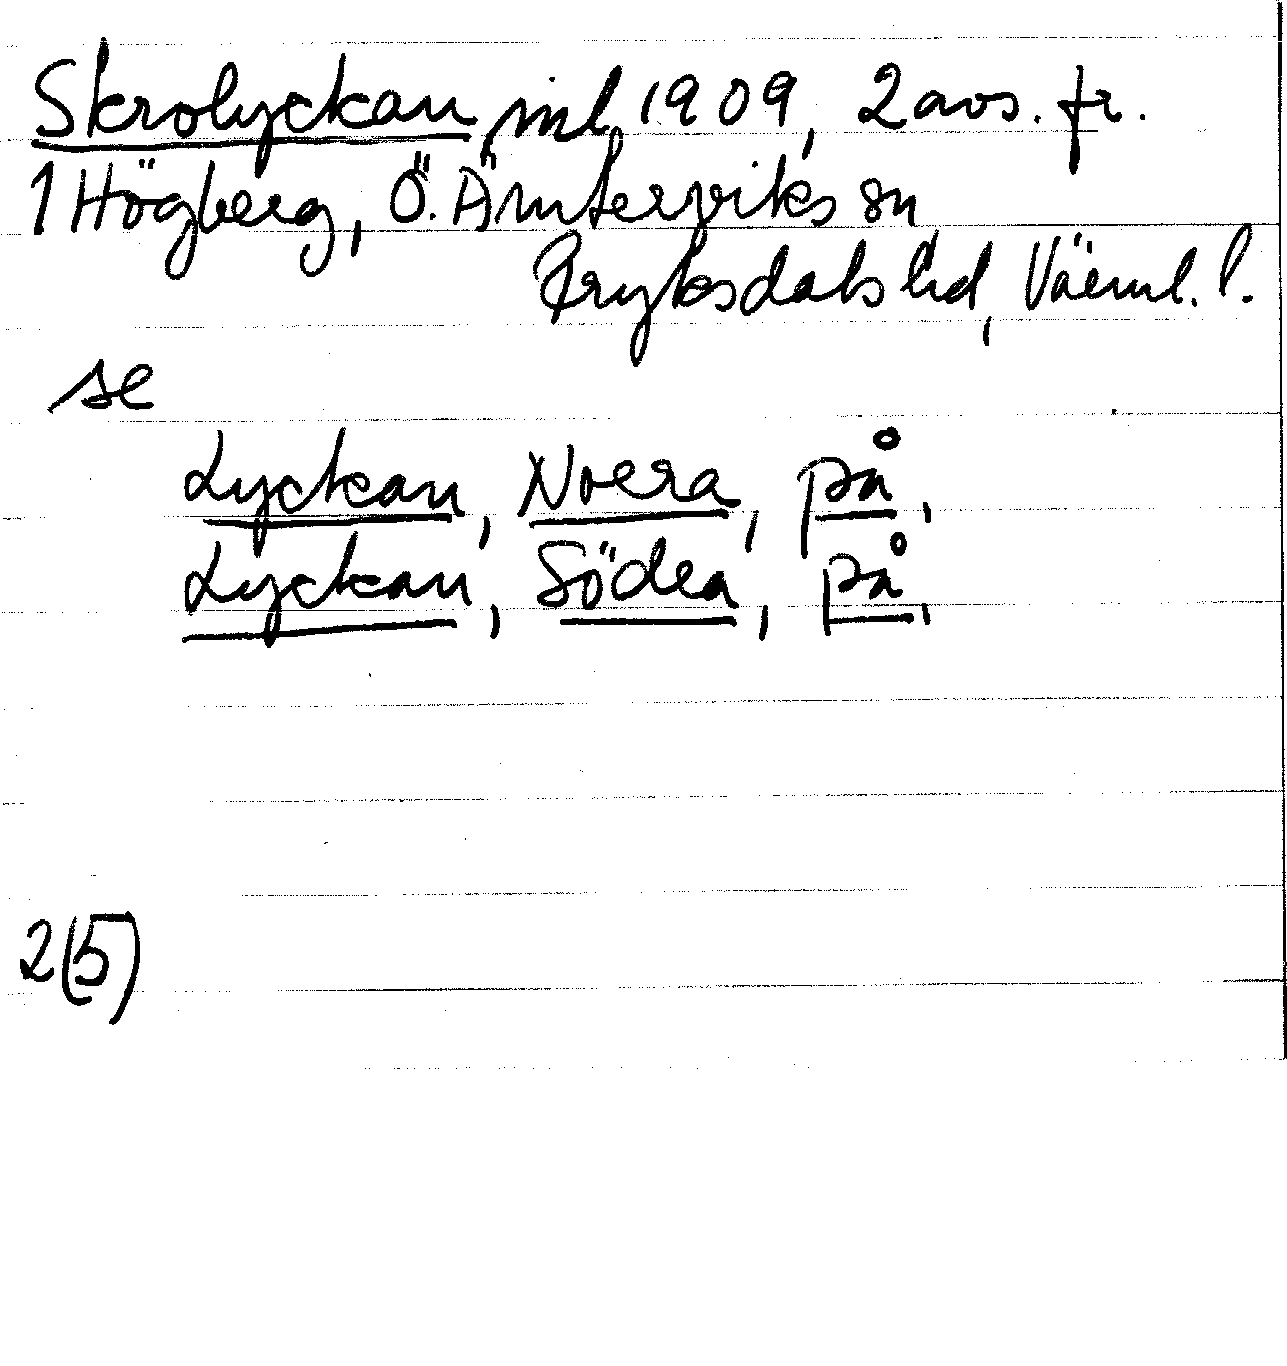 Skrolyckan, inl 1909, 2 avs. fr.
1 Högberg, Ö. Ämterviks sn
Fryksdals hd, Värml. l.
se
Lyckan, Norra, på,
Lyckan, Södra, på,
2(5)